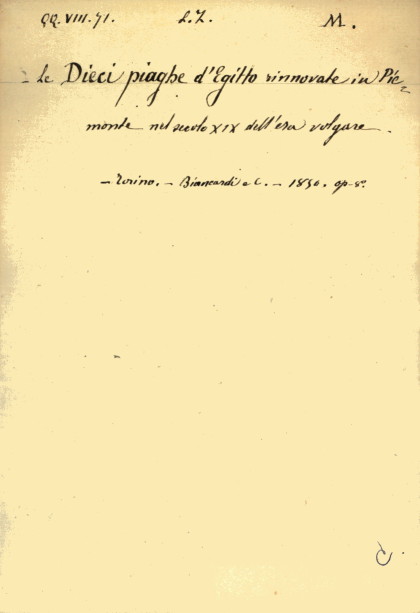 QQ. VIII. 71. L. Z. M.
- Le Dieci piaghe d'Egitto rinnovate in Pie=
monte nel secolo XIX dell'era volgare.
- Torino. - Biancardi e C. - 1850. op-8°.